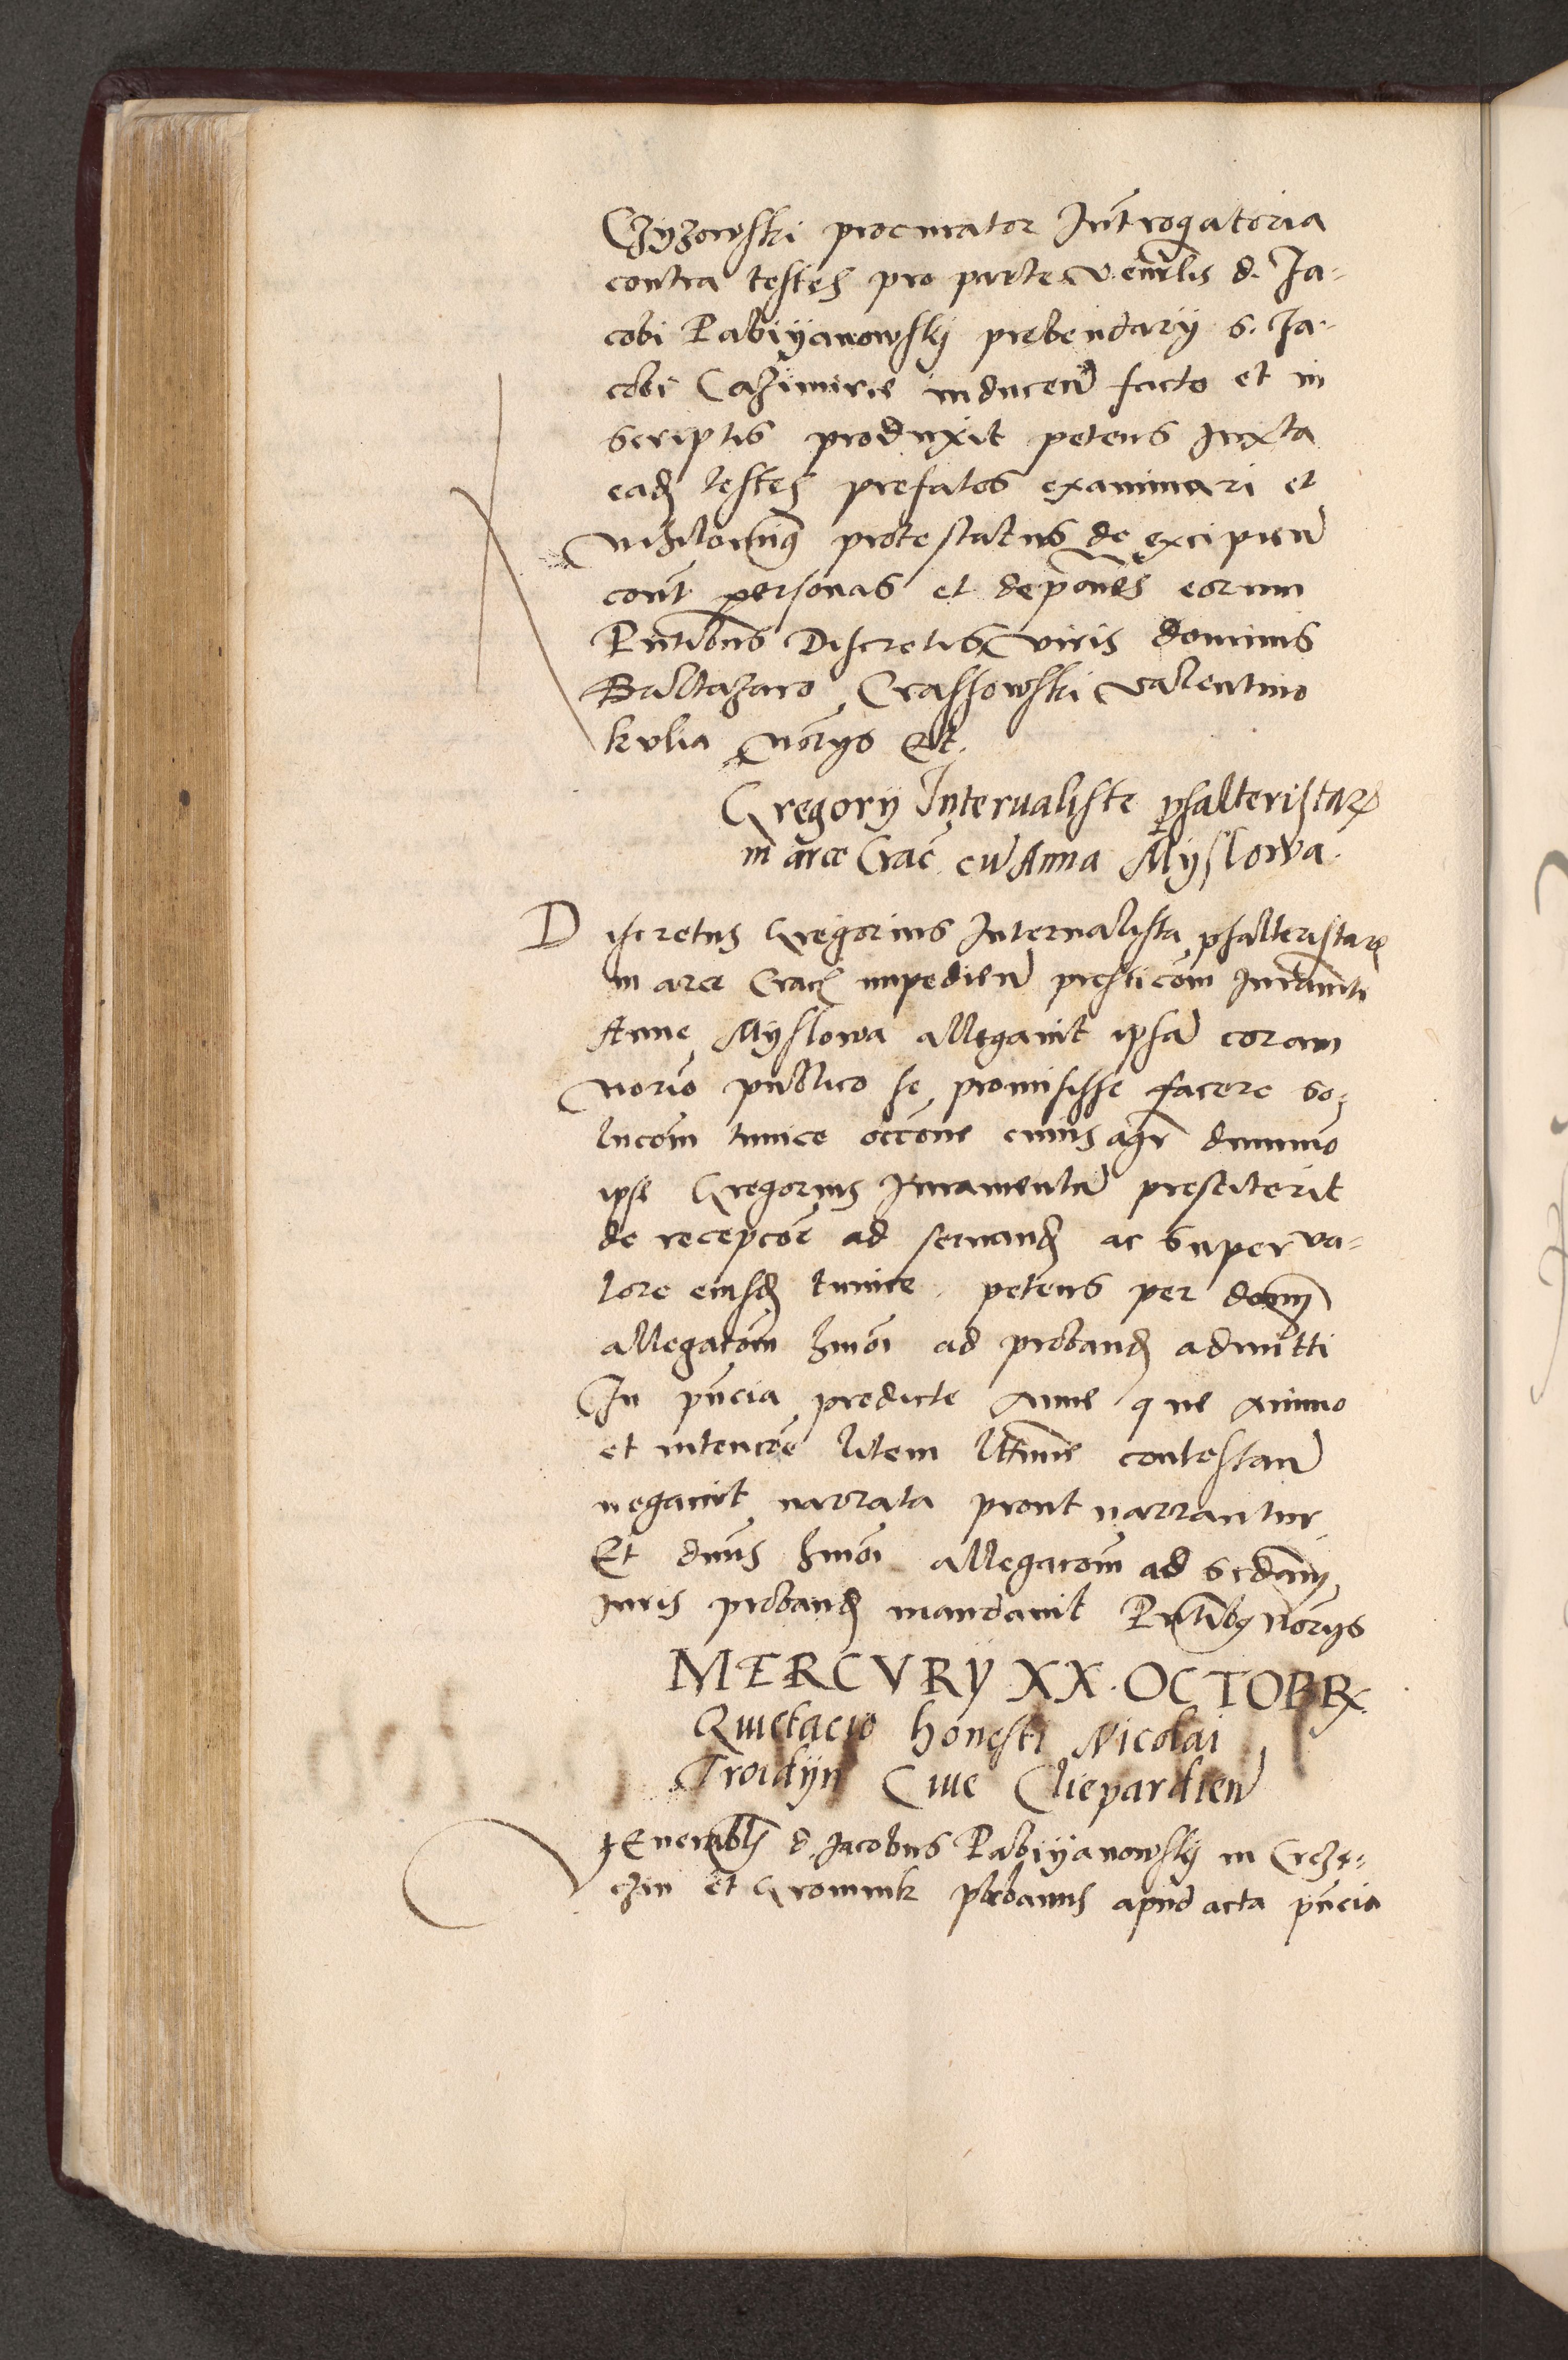 Czyzowski procurator Int̄rogatoria
contra testes pro parte venerlis d. Ja-
cobi Pabiyanowskj prebendarij S. Ja-
cobi Cazimirie inducen̄ facto et in
scriptis produxit petens Iuxta
ead testes prefatos examinari et
nihilominꝰ protestatus de excipien̄
cont̄ personas et depōnes eorum
Pn̄tibus Discretis viris dominis
Baltazaro Crassowski valentino
kulia no͞rijs Et.
Gregorij Interualiste psalteristaꝝ
in arce Crac̄ cū Anna Myslowa.
Discretus Gregorius Interualista psalteristaꝝ
in arce Crac impedien̄ prestic͞om Iuramti
Anne Myslowa allegauit ipsā coram
norio publico se promisisse facere so-
luc͞om tunice occ͞one cuius agr̄ dummo
ipse Gregorius Iuramentū prestiterit
de recepc͞oe ad seruand ac super va-
lore eiusd tunice petens per domī
allegac͞om hm͞oi ad proband admitti
In pn̄cia predicte Anne que animo
et intenc͞oe litem l͞ttime contestan̄
negauit narrata prout narrantur
Et dnūs hm͞oi allegac͞om ad 2dam
iuris proband mandauit Pn̄tibꝰ no͞rijs
MERCVRY XX. OCTOBR
Quietacio honesti Nicolai
Troidyn Ciue Cliepardien̄
Venerabl d. Jacobus Pabiyanowskj in Crze-
czin et Gromnik plebanus apud acta pn̄cia